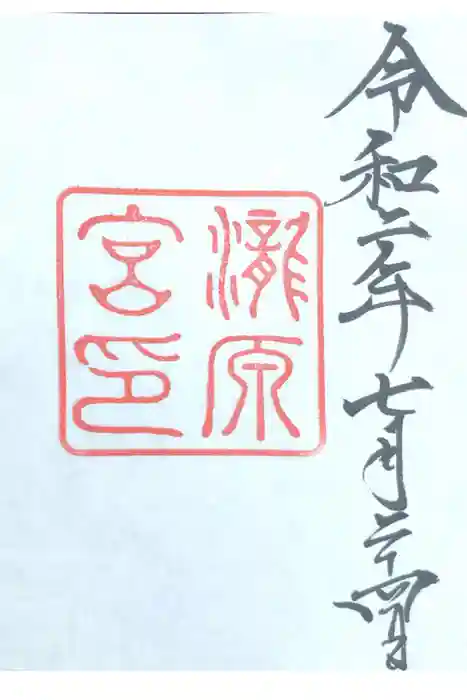 令和二年七月二十四日
瀧原
宮印